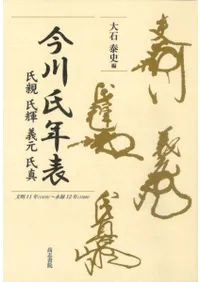 大石 泰史 編
今川氏年表
氏親 氏輝 義元 氏真
文明11年(1479)～永禄12年(1569)
高志書院